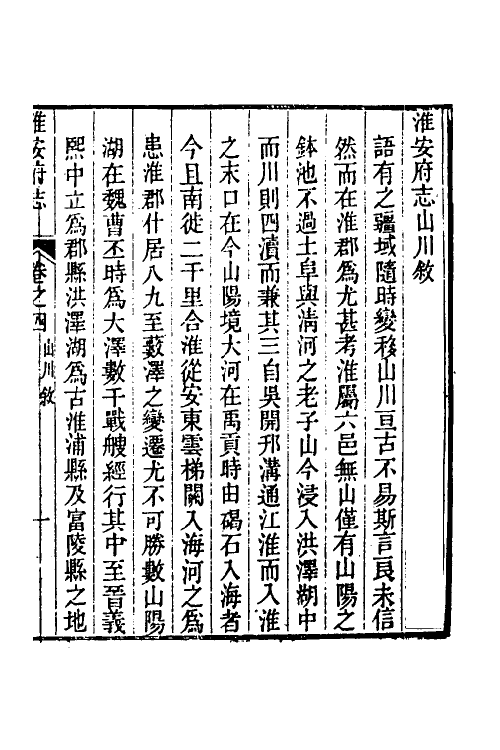 淮安府志山川敘
語有之疆域隨時變移山川亘古不易斯言良未信
然而在淮郡爲尤甚考淮屬六邑無山僅有山陽之
鉢池不過土阜與淸河之老子山今浸入洪澤湖中
而川則四瀆而兼其三自吳開邗溝通江淮而入淮
之末口在今山陽境大河在禹貢時由碣石入海者
今且南徙二千里合淮從安東雲梯關入海河之爲
患淮郡什居八九至藪澤之變遷尤不可勝數山陽
湖在魏曹丕時爲大澤數千戰艘經行其中至晉義
熙中立爲郡縣洪澤湖爲古淮浦縣及富陵縣之地
淮安府志
卷之四
山川敘
一